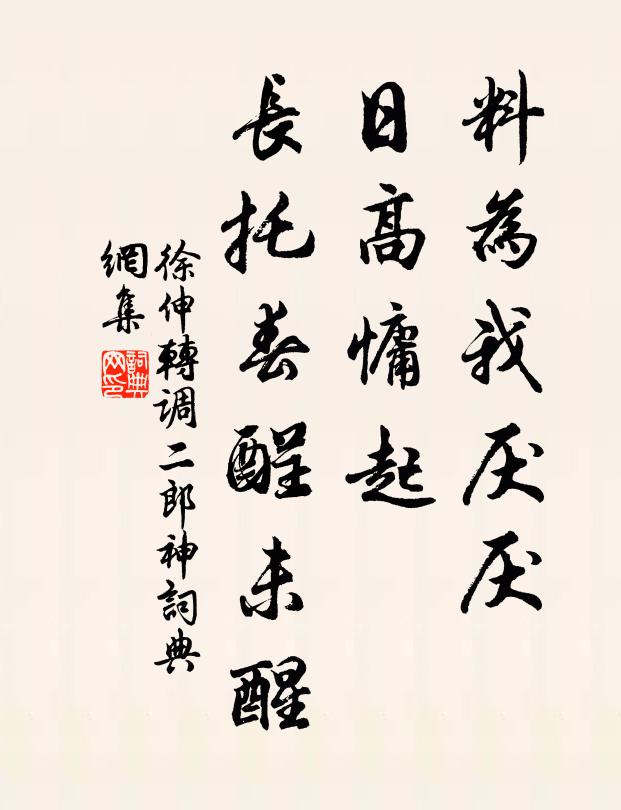 料為我厌厌
日高慵起
長托春酲未醒
徐伸轉調二郎神詞典
網集
詞典網印